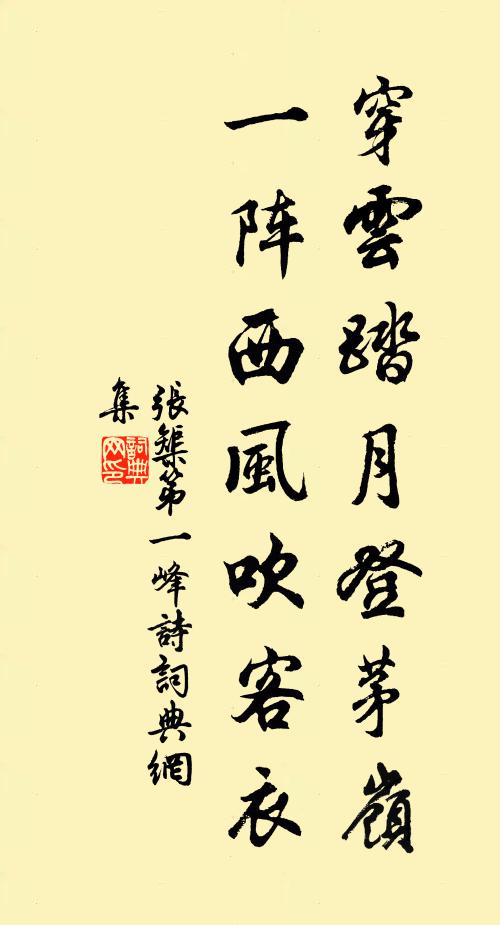 穿雲踏月登茅嶺
一阵西風吹客衣
張榘第一峰詩詞典網
集
詞典网印